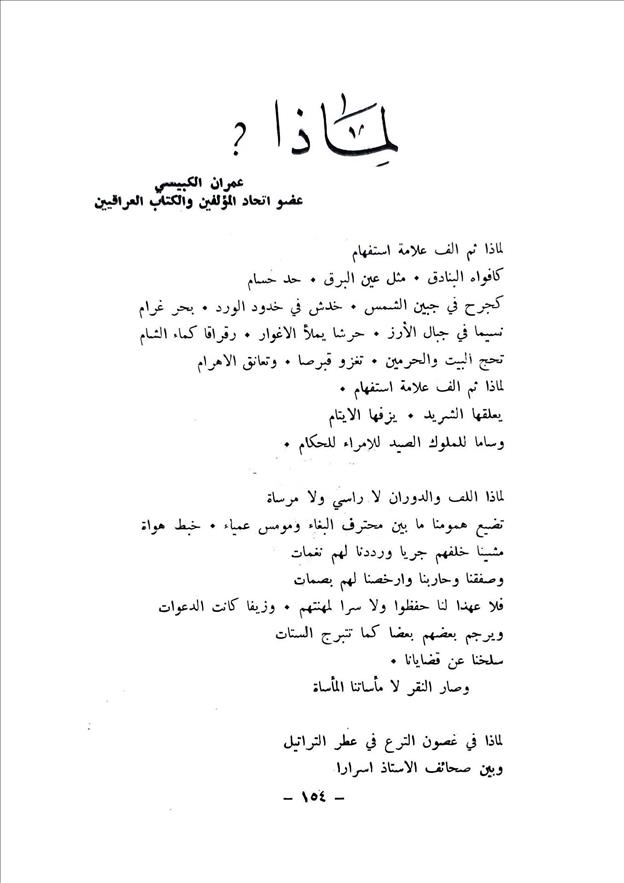 لماذا ?
عمران الكبيسي
عضو اتحاد المؤلفين والكتاب العراقيين
لماذا ثم الف علامة استفهام
كافواه البنادق • مثل عين البرق • حد حسام
كجرح في جبين الشمس • خدش في خدود الورد • بحر غرام
نسيما في جبال الأرز • حرشا يملأ الاغوار • رقراقا كماء الشام
تحج البيت والحرمين • تغزو قبرصا • وتعانق الاهرام
لماذا ثم الف علامة استفهام •
يعلقها الشريد • يزفها الايتام
وساما للملوك الصيد للامراء للحكام •
لماذا اللف والدوران لا راسي ولا مرساة
تضيع همومنا ما بين محترف البغاء ومومس عمياء • خبط هواة
مشينا خلفهم جريا ورددنا لهم نغمات
وصفقنا وحاربنا وارخصنا لهم بصمات
فلا عهدا لنا حفظوا ولا سرا لمهنتهم • وزيفا كانت الدعوات
ويرجم بعضهم بعضا كما تتبرج الستات
سلخنا عن قضايانا •
وصار النقر لا مأساتنا المأساة
لماذا في غصون الترع في عطر التراتيل
وبين صحائف الاستاذ اسرارا
– ١٥٤ –